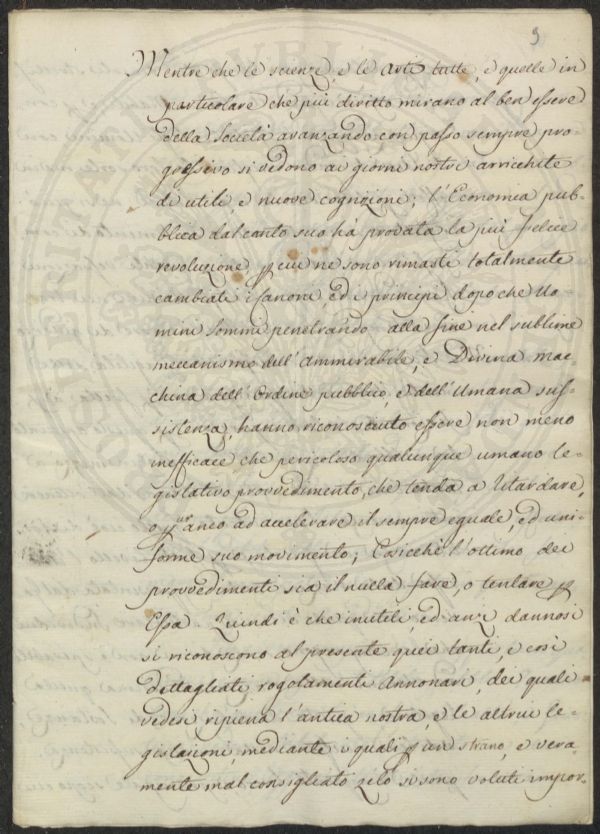 9
Mentre che le scienze, e le arti tutte, e quelle in
particolare che più diritto mirano al ben essere
della Società avanzando con passo sempre pro-
gressivo si vedono ai giorni nostri arricchite
di utili e nuove cognizioni; l'Economia pub-
blica dal canto suo ha provata la più felice
revoluzione, p cui ne sono rimasti totalmente
cambiati i Canoni, ed i principj dopo che Uo
mini Sommi penetrando alla fine nel sublime
meccanismo dell'ammirabile, e Divina mac-
china dell'Ordine pubblico, e dell'Umana sus-
sistenza, hanno riconosciuto essere non meno
inefficace che pericoloso qualunque umano le-
gislativo provvedimento, che tenda a ritardare,
o pur anco ad accelerare il sempre eguale, ed uni-
forme suo movimento; Cosicchè l'ottimo dei
provvedimenti sia il nulla fare, o tentare p
Essa. Quindi è che inutili, ed anzi dannosi
si riconoscono al presente quei tanti, e così
dettagliati regolamenti Annonarj, dei quali
vedesi ripiena l'antica nostra, e le altrui le-
gislazioni, mediante i quali p uno strano, e vera-
mente mal consigliato zelo si sono voluti impor-